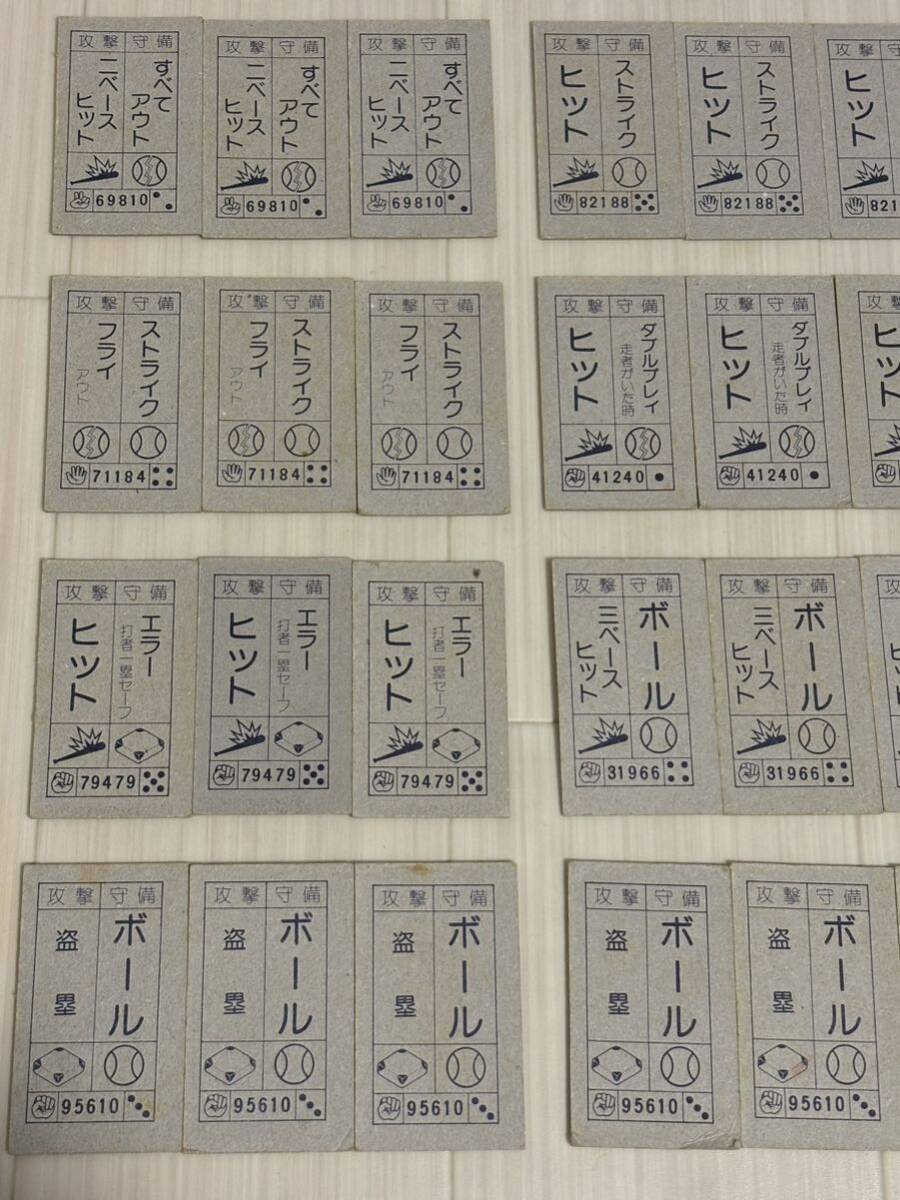 攻撃 守備
すべてアウト
二ベースヒット
69810
攻撃 守備
すべてアウト
二ベースヒット
69810
攻撃 守備
すべてアウト
二ベースヒット
69810
攻撃 守備
ストライク
ヒット
82188
攻撃 守備
ストライク
ヒット
82188
攻撃
ヒット
821
攻撃 守備
ストライク
フライ
アウト
71184
攻撃 守備
ストライク
フライ
アウト
71184
攻撃 守備
ストライク
フライ
アウト
71184
攻撃 守備
ダブルプレイ
走者がいた時
ヒット
41240
攻撃 守備
ダブルプレイ
走者がいた時
ヒット
41240
攻撃
ヒット
攻撃 守備
エラー
打者一塁セーフ
ヒット
79479
攻撃 守備
エラー
打者一塁セーフ
ヒット
79479
攻撃 守備
エラー
打者一塁セーフ
ヒット
79479
攻撃 守備
ボール
三ベースヒット
31966
攻撃 守備
ボール
三ベースヒット
31966
攻撃 守備
ボール
盗塁
95610
攻撃 守備
ボール
盗塁
95610
攻撃 守備
ボール
盗塁
95610
攻撃 守備
ボール
盗塁
95610
攻撃 守備
ボール
盗塁
95610